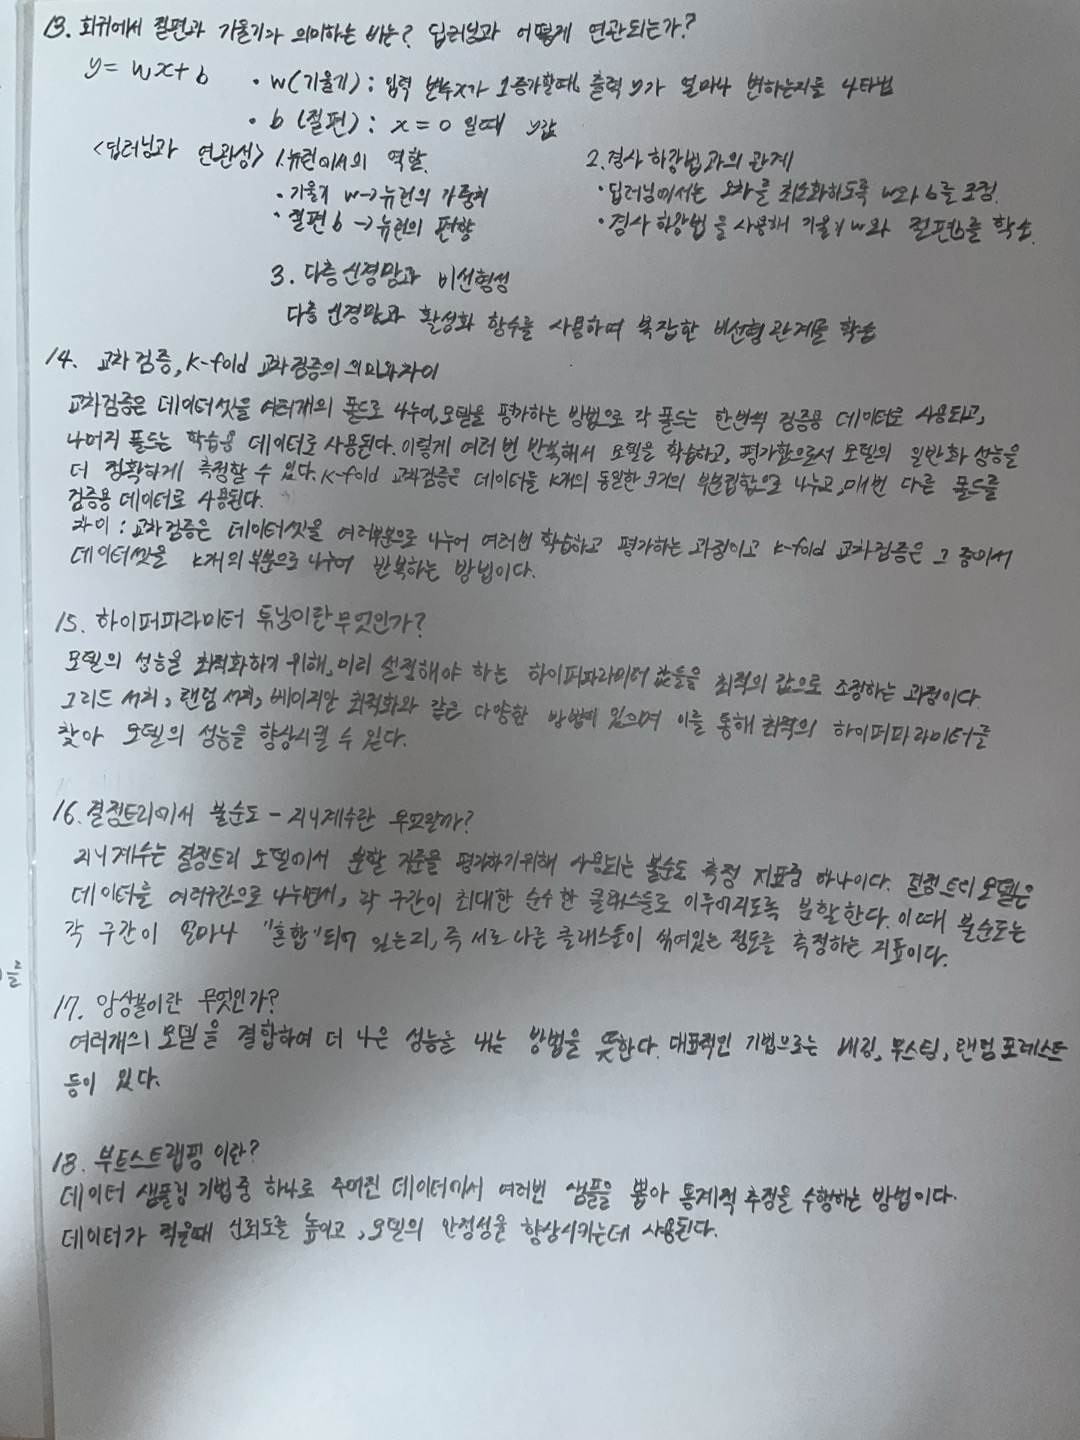 13. 회귀에서 절편과 기울기가 의미하는 바는? 딥러닝과 어떻게 연관되는가?
y = wx + b
• w(기울기) : 입력 변수x가 1증가할때 출력 y가 얼마나 변하는지를 나타냄
• b (절편) : x = 0 일때 y값
<딥러닝과 연관성> 1. 뉴런에서의 역할
• 기울기 w → 뉴런의 가중치
• 절편 b → 뉴런의 편향
2. 경사 하강법과의 관계
• 딥러닝에서는 오차를 최소화하도록 w와 b를 조정.
• 경사 하강법을 사용해 기울기 w와 절편b를 학습.
3. 다층 신경망과 비선형성
다층 신경망과 활성화 함수를 사용하며 복잡한 비선형 관계를 학습
14. 교차 검증, K-fold 교차 검증의 의미와 차이
교차검증은 데이터셋을 여러개의 폴드로 나누어, 모델을 평가하는 방법으로 각 폴드는 한번씩 검증용 데이터로 사용되고,
나머지 폴드는 학습용 데이터로 사용된다. 이렇게 여러 번 반복해서 모델을 학습하고, 평가함으로서 모델의 일반화 성능을
더 정확하게 측정할 수 있다. K-fold 교차검증은 데이터를 K개의 동일한 크기의 부분집합으로 나누고, 매번 다른 폴드를
검증용 데이터로 사용된다.
차이 : 교차검증은 데이터셋을 여러부분으로 나누어 여러번 학습하고 평가하는 과정이고 K-fold 교차검증은 그 중에서
데이터셋을 K개의 부분으로 나누어 반복하는 방법이다.
15. 하이퍼파라미터 튜닝이란 무엇인가?
모델의 성능을 최적화하기 위해, 미리 설정해야 하는 하이퍼파라미터 값들을 최적의 값으로 조정하는 과정이다.
그리드 서치, 랜덤 서치, 베이지안 최적화와 같은 다양한 방법이 있으며 이를 통해 최적의 하이퍼파라미터를
찾아 모델의 성능을 향상시킬 수 있다.
16. 결정트리에서 불순도 - 지니계수란 무엇일까?
지니계수는 결정트리 모델에서 분할 기준을 평가하기위해 사용되는 불순도 측정 지표중 하나이다. 결정트리 모델은
데이터를 여러구간으로 나누면서, 각 구간이 최대한 순수한 클래스들로 이루어지도록 분할한다. 이때 불순도는
각 구간이 얼마나 "혼합"되어 있는지, 즉 서로 다른 클래스들이 섞여있는 정도를 측정하는 지표이다.
를
17. 앙상블이란 무엇인가?
여러개의 모델을 결합하여 더 나은 성능을 내는 방법을 뜻한다. 대표적인 기법으로는 배깅, 부스팅, 랜덤 포레스트
등이 있다.
18. 부트스트랩핑 이란?
데이터 샘플링 기법중 하나로 주어진 데이터에서 여러번 샘플을 뽑아 통계적 추정을 수행하는 방법이다.
데이터가 적을때 신뢰도를 높이고, 모델의 안정성을 향상시키는데 사용된다.